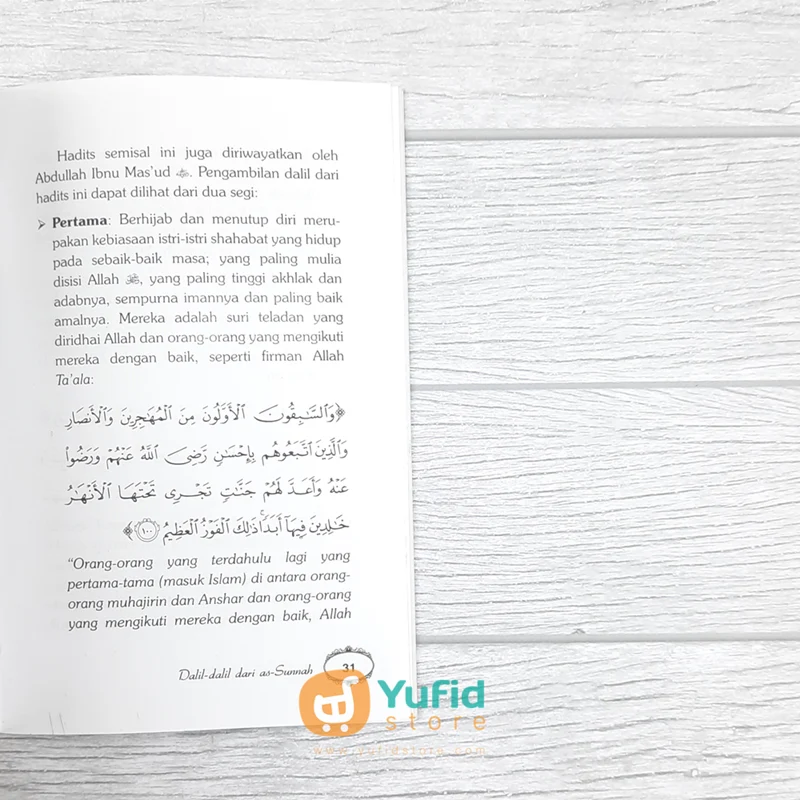 Hadits semisal ini juga diriwayatkan oleh
Abdullah Ibnu Mas'ud ﷺ. Pengambilan dalil dari
hadits ini dapat dilihat dari dua segi:
➢ Pertama: Berhijab dan menutup diri meru-
pakan kebiasaan istri-istri shahabat yang hidup
pada sebaik-baik masa; yang paling mulia
disisi Allah, yang paling tinggi akhlak dan
adabnya, sempurna imannya dan paling baik
amalnya. Mereka adalah suri teladan yang
diridhai Allah dan orang-orang yang mengikuti
mereka dengan baik, seperti firman Allah
Ta'ala:
﴿وَالسَّٰبِقُونَ الْأَوَّلُونَ مِنَ الْمُهَٰجِرِينَ وَالْأَنصَارِ
وَالَّذِينَ اتَّبَعُوهُم بِإِحْسَٰنٍ رَّضِىَ اللَّهُ عَنْهُمْ وَرَضُوا۟
عَنْهُ وَأَعَدَّ لَهُمْ جَنَّٰتٍ تَجْرِى تَحْتَهَا الْأَنْهَٰرُ
خَٰلِدِينَ فِيهَآ أَبَدًا ۚ ذَٰلِكَ الْفَوْزُ الْعَظِيمُ ١٠٠﴾
"Orang-orang yang terdahulu lagi yang
pertama-tama (masuk Islam) di antara orang-
orang muhajirin dan Anshar dan orang-orang
yang mengikuti mereka dengan baik, Allah
Dalil-dalil dari as-Sunnah 31
Yufid
store
www.yufidstore.com